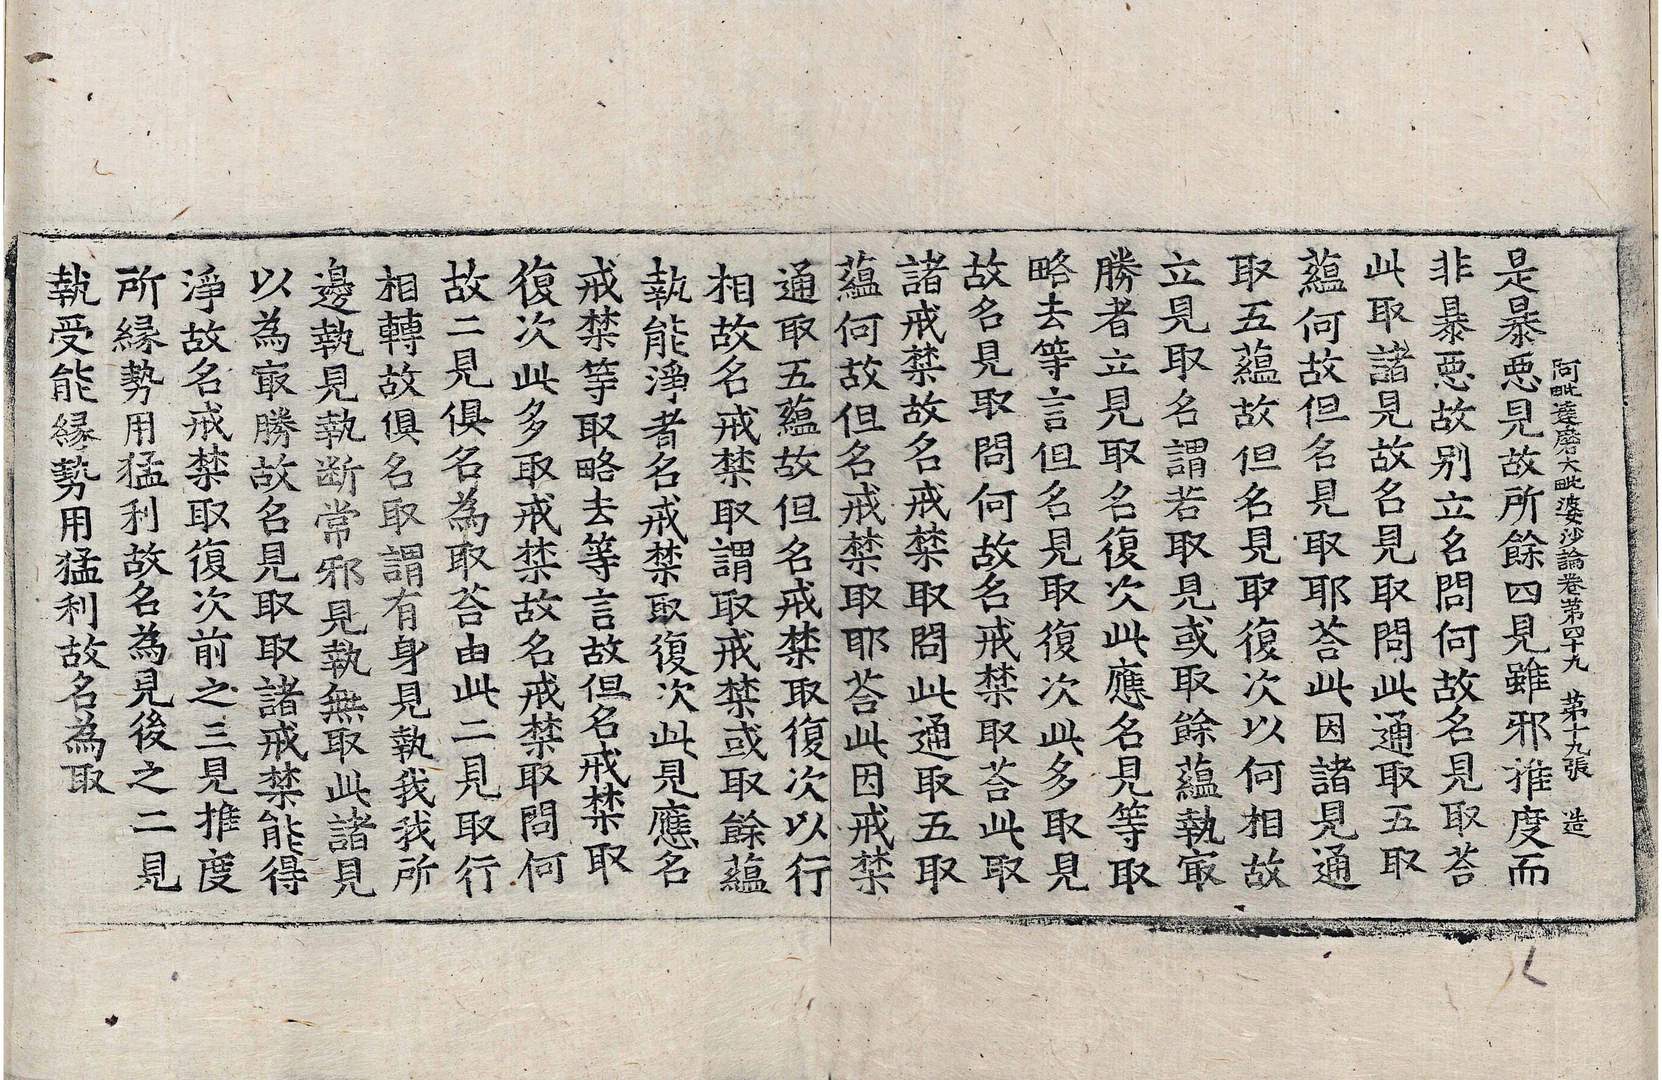 阿毗達磨大毗婆沙論卷第四十九 第十九張 造
是暴惡見故所餘四見雖邪推度而
非暴惡故別立名問何故名見取荅
此取諸見故名見取問此通取五取
蘊何故但名見取耶荅此因諸見通
取五蘊故但名見取復次以何相故
立見取名謂若取見或取餘蘊執㝡
勝者立見取名復次此應名見等取
略去等言但名見取復次此多取見
故名見取問何故名戒禁取荅此取
諸戒禁故名戒禁取問此通取五取
蘊何故但名戒禁取耶荅此因戒禁
通取五蘊故但名戒禁取復次以行
相故名戒禁取謂取戒禁或取餘蘊
執能淨者名戒禁取復次此見應名
戒禁等取略去等言故但名戒禁取
復次此多取戒禁故名戒禁取問何
故二見俱名為取荅由此二見取行
相轉故俱名取謂有身見執我我所
邊執見執断常邪見執無取此諸見
以為㝡勝故名見取取諸戒禁能得
淨故名戒禁取復次前之三見推度
所緣勢用猛利故名為見後之二見
執受能緣勢用猛利故名為取